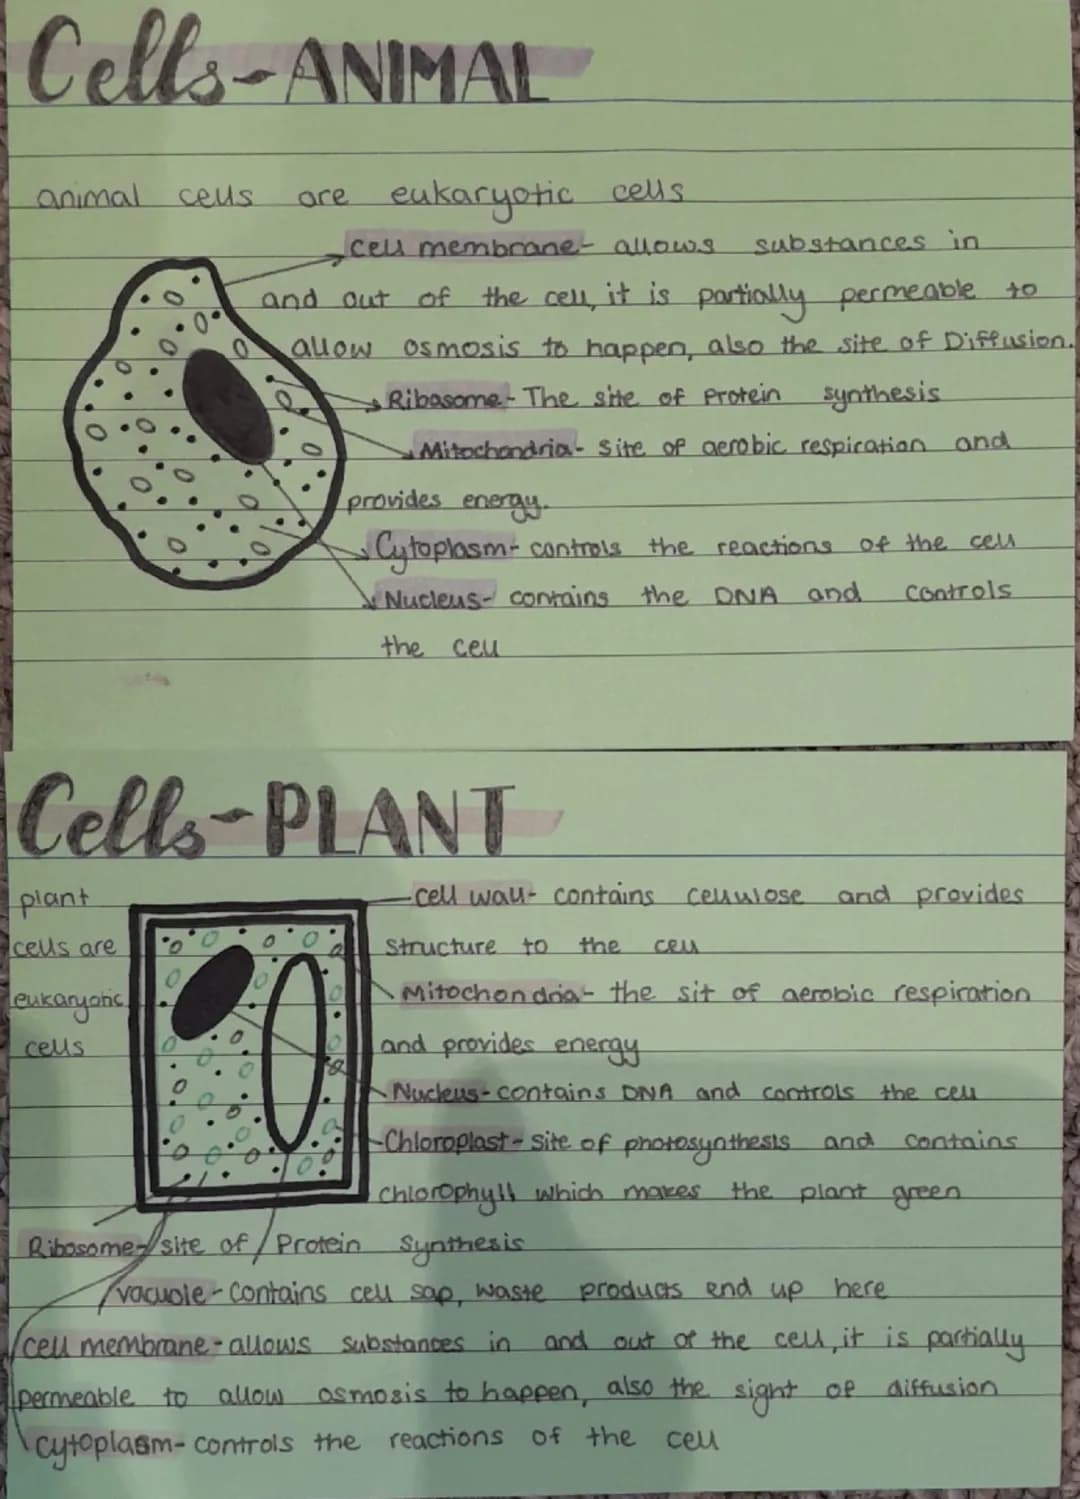 Cells-ANIMAL
animal cells are eukaryotic cells
cell membrane- allows substances in
and out of the cell, it is partially permeable to
allow osmosis to happen, also the site of Diffusion.
Ribosome- The site of Protein synthesis
Mitochondria- site of aerobic respiration and
provides energy.
Cytoplasm- controls the reactions of the cell
Nucleus- contains the DNA and controls
the cell
Cells-PLANT
plant
cells are
eukaryotic
cells
cell wall- contains cellulose and provides
structure to the cell
Mitochondria- the sit of aerobic respiration
and provides energy
Nucleus- contains DNA and controls the cell
Chloroplast- site of photosynthesis and contains
chlorophyll which makes the plant green
Ribosome- site of Protein Synthesis
vacuole- contains cell sap, waste products end up here
cell membrane- allows substances in and out of the cell, it is partially
permeable to allow osmosis to happen, also the sight of diffusion
cytoplasm- controls the reactions of the cell